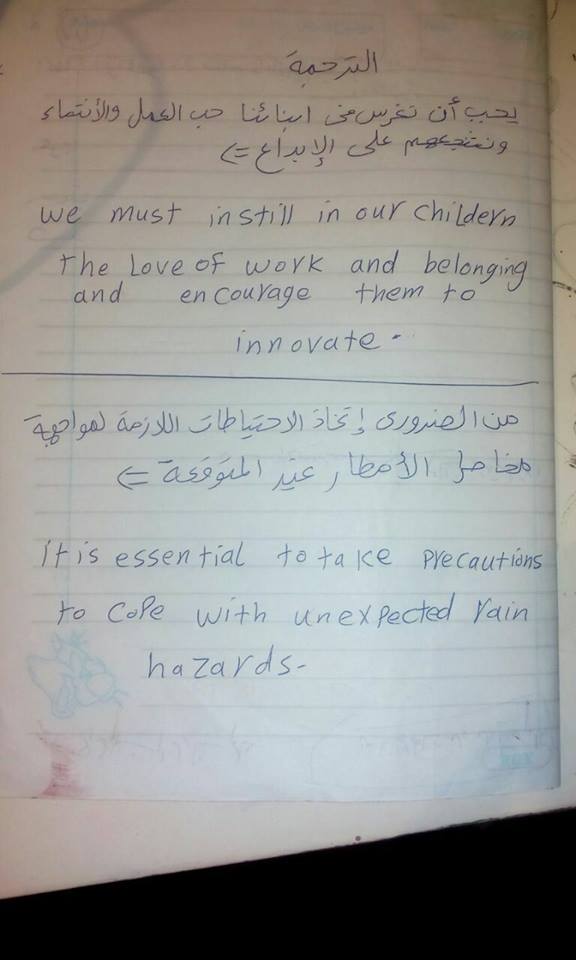 الترجمة
يجب أن نغرس في ابنائنا حب العمل والأنتماء
ونشجعهم على الإبداع <=
we must instill in our childern
the Love of work and belonging
and encourage them to
innovate.
من الضرورى إتخاذ الاحتياطات اللازمة لمواجهة
مخاطر الأمطار غير المتوقعة <=
it is essential to take precautions
to cope with unexpected rain
hazards.